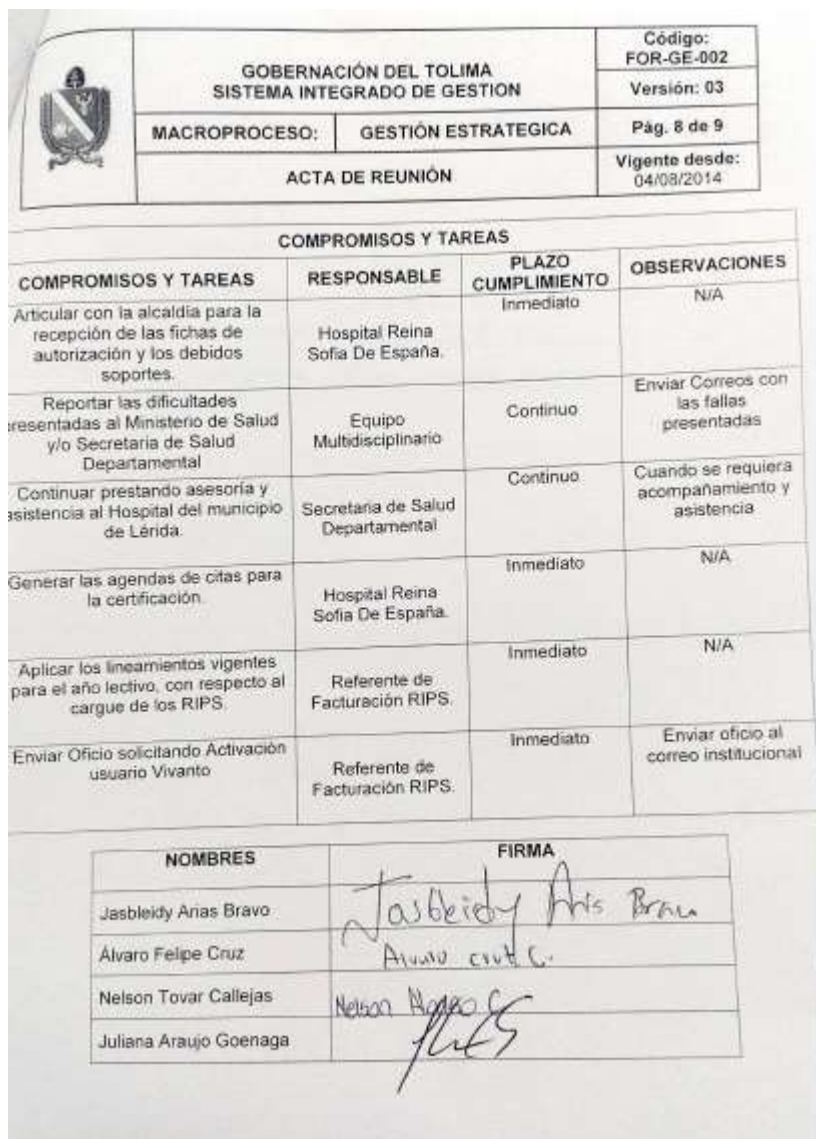 GOBERNACIÓN DEL TOLIMA
SISTEMA INTEGRADO DE GESTION
Código:
FOR-GE-002
Versión: 03
MACROPROCESO:
GESTIÓN ESTRATEGICA
Pág. 8 de 9
ACTA DE REUNIÓN
Vigente desde:
04/08/2014
COMPROMISOS Y TAREAS
COMPROMISOS Y TAREAS
RESPONSABLE
PLAZO
CUMPLIMIENTO
OBSERVACIONES
Articular con la alcaldía para la
recepción de las fichas de
autorización y los debidos
soportes.
Hospital Reina
Sofia De España.
Inmediato
N/A
Reportar las dificultades
resentadas al Ministerio de Salud
y/o Secretaria de Salud
Departamental
Equipo
Multidisciplinario
Continuo
Enviar Correos con
las fallas
presentadas
Continuar prestando asesoría y
asistencia al Hospital del municipio
de Lérida.
Secretaria de Salud
Departamental
Continuo
Cuando se requiera
acompañamiento y
asistencia
Generar las agendas de citas para
la certificación.
Hospital Reina
Sofia De España.
Inmediato
N/A
Aplicar los lineamientos vigentes
para el año lectivo, con respecto al
cargue de los RIPS.
Referente de
Facturación RIPS.
Inmediato
N/A
Enviar Oficio solicitando Activación
usuario Vivanto
Referente de
Facturación RIPS.
Inmediato
Enviar oficio al
correo institucional
NOMBRES
FIRMA
Jasbleidy Arias Bravo
Jasbleidy
Álvaro Felipe Cruz
Nelson Tovar Callejas
Nelson
Juliana Araujo Goenaga